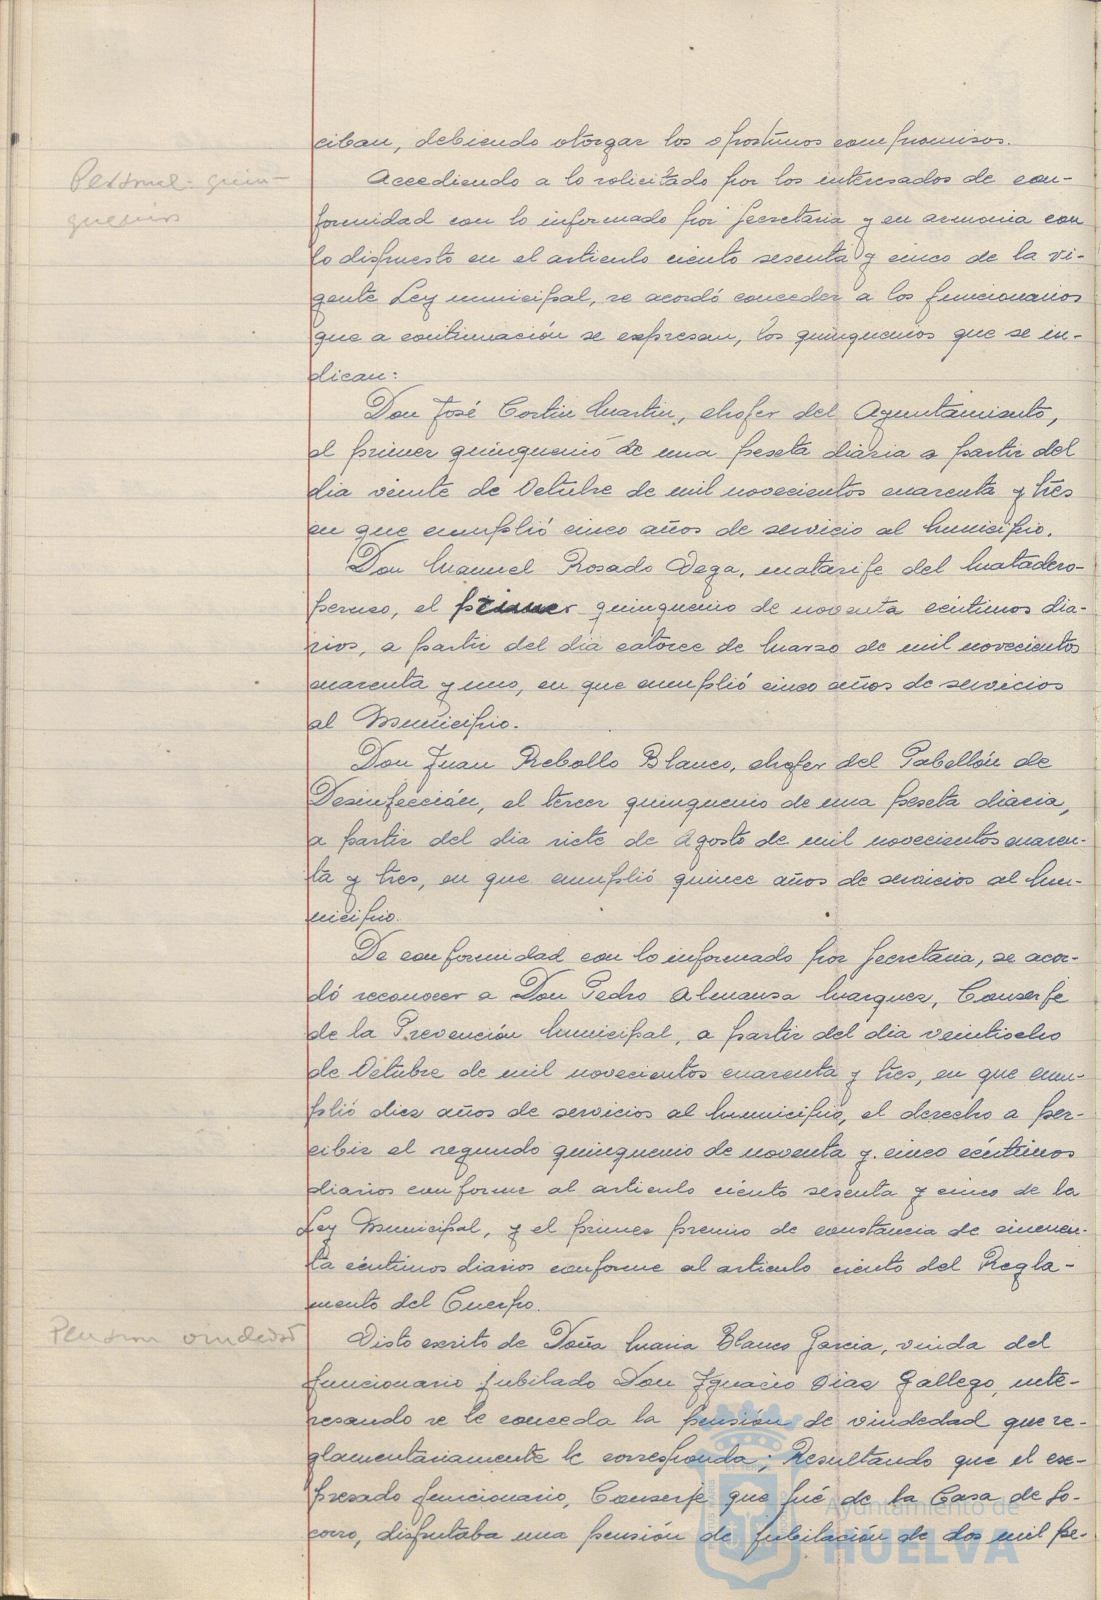 ciban, debiendo otorgar los oportunos compromisos.
Personal: quin-
quenios
Accediendo a lo solicitado por los interesados de con-
formidad con lo informado por Secretaria y en armonia con
lo dispuesto en el articulo ciento sesenta y cinco de la vi-
gente Ley municipal, se acordó conceder a los funcionarios
que a continuación se expresan, los quinquenios que se in-
dican:
Don José Cortin Martin, chofer del Ayuntamiento,
el primer quinquenio de una peseta diaria a partir del
dia veinte de Octubre de mil novecientos cuarenta y tres
en que cumplió cinco años de servicio al Municipio.
Don Manuel Rosado Vega, matarife del Matadero
perneo, el primer quinquenio de noventa céntimos dia-
rios, a partir del dia catorce de Marzo de mil novecientos
cuarenta y uno, en que cumplió cinco años de servicios
al Municipio.
Don Juan Rebollo Blanco, chofer del Pabellón de
Desinfección, el tercer quinquenio de una peseta diaria,
a partir del dia siete de Agosto de mil novecientos cuaren-
ta y tres, en que cumplió quince años de servicios al Mu-
nicipio.
De conformidad con lo informado por Secretaria, se acor-
dó reconocer a Don Pedro Almansa Marquez, Conserje
de la Prevención Municipal, a partir del dia veintiocho
de Octubre de mil novecientos cuarenta y tres, en que cum-
plió diez años de servicios al Municipio, el derecho a per-
cibir el segundo quinquenio de noventa y cinco céntimos
diarios conforme al articulo ciento sesenta y cinco de la
Ley Municipal, y el primer premio de constancia de cincuen-
ta céntimos diarios conforme al articulo ciento del Regla-
mento del Cuerpo.
Pension viudedad
Visto escrito de Doña Maria Blanco Garcia, viuda del
funcionario jubilado Don Ignacio Diaz Gallego, inte-
resando se le conceda la pensión de viudedad que re-
glamentariamente le corresponda; Resultando que el ex-
presado funcionario, Conserje que fué de la Casa de So-
corro, disfrutaba una pensión de jubilación de dos mil pe-
Ayuntamiento de
HUELVA